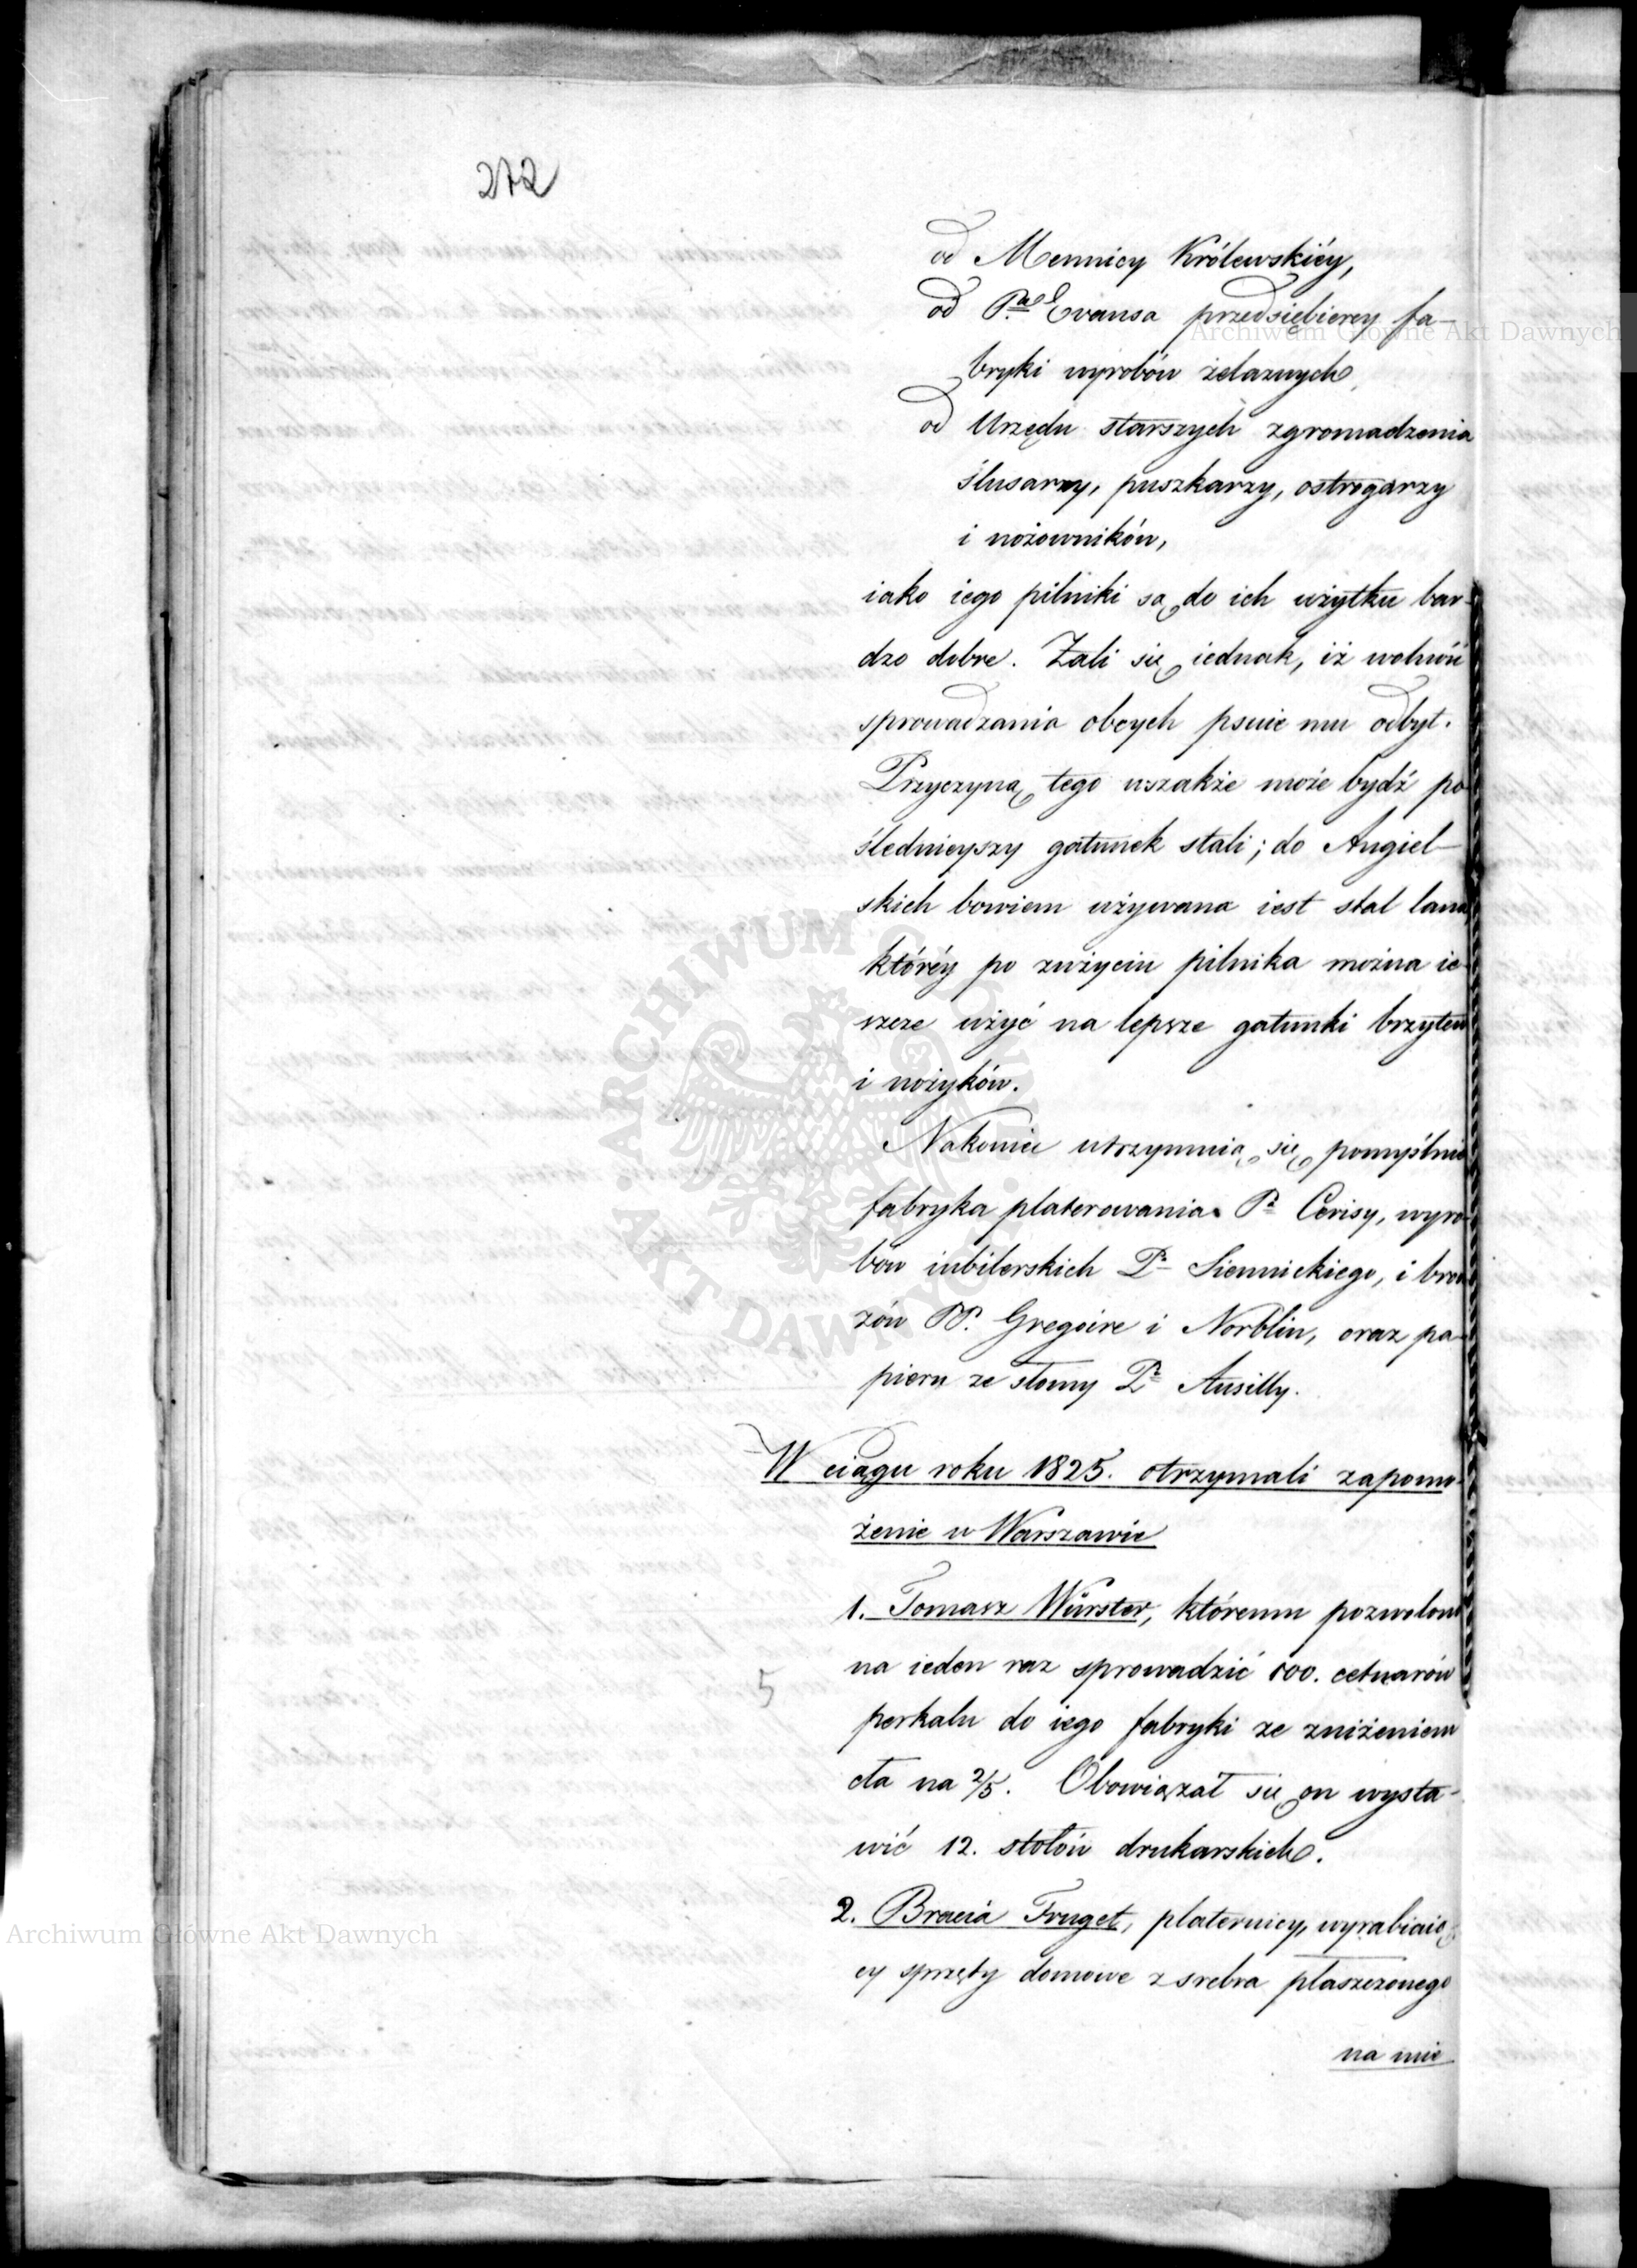 272
od Mennicy Królewskiéy,
od P.na Evansa przedsiębiercy fa-
bryki wyrobów żelaznych
od Urzędu starszych zgromadzenia
ślusarzy, puszkarzy, ostrogarzy
i nożowników,
iako iego pilniki są do ich użytku bar-
dzo dobre. Żali się iednak, iż wolność
sprowadzania obcych psuie mu odbyt.
Przyczyną tego wszakże może bydź po-
ślednieyszy gatunek stali; do Angiel-
skich bowiem używana iest stal lana
któréy po zużyciu pilnika można ie-
szcze użyć na lepsze gatunki brzytew
i nożyków.
Nakoniec utrzymuią się pomyślnie
fabryka platerowania Pa Cerisy, wyro-
bów iubilerskich Pa Siennickiego, i bron-
zów PP. Gregoire i Norblin, oraz pa-
pieru ze słomy Pa Ausilly.
W ciągu roku 1825. otrzymali zapomo-
żenie w Warszawie
1. Tomasz Würster, któremu pozwolono
na ieden raz sprowadzić 100. cetnarów
5
perkalu do iego fabryki ze zniżeniem
cła na 2/5. Obowiązał się on wysta-
wić 12. stołów drukarskich.
2. Bracia Fruget, platernicy, wyrabiaią-
cy sprzęty domowe z srebra płaszczonego
na mie
Archiwum Główne Akt Dawnych
Archiwum Główne Akt Dawnych
ARCHIWUM GŁÓWNE AKT DAWNYCH